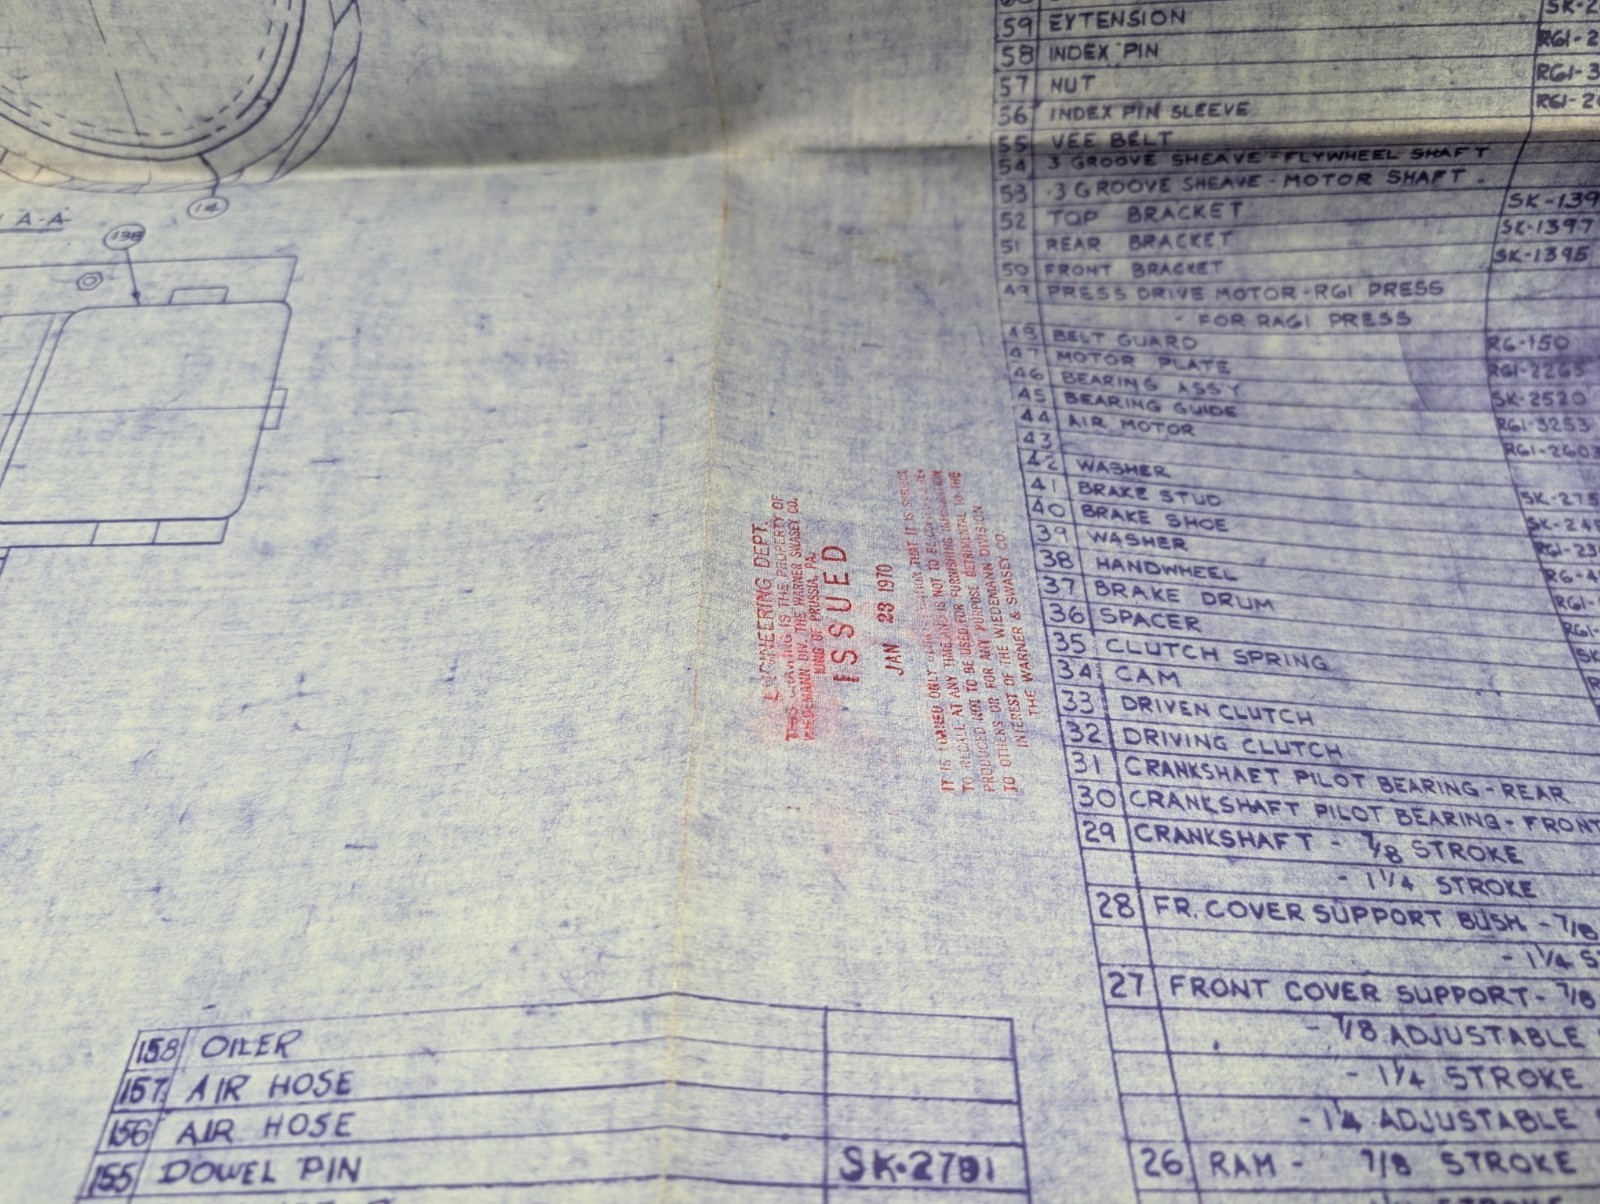 A-A
14
138
59 EXTENSION
58 INDEX PIN RG1-2
57 NUT RG1-3
56 INDEX PIN SLEEVE RG1-2
55 VEE BELT
54 3 GROOVE SHEAVE - FLYWHEEL SHAFT
53 3 GROOVE SHEAVE - MOTOR SHAFT
52 TOP BRACKET SK-139
51 REAR BRACKET SK-1397
50 FRONT BRACKET SK-1395
49 PRESS DRIVE MOTOR - RG1 PRESS
- FOR RAG1 PRESS
48 BELT GUARD RG-150
47 MOTOR PLATE RG1-2265
46 BEARING ASSY SK-2520
45 BEARING GUIDE RG1-3253
44 AIR MOTOR RG1-2603
43
42 WASHER SK-275
41 BRAKE STUD
40 BRAKE SHOE
39 WASHER
38 HANDWHEEL
37 BRAKE DRUM
36 SPACER
35 CLUTCH SPRING
34 CAM
33 DRIVEN CLUTCH
32 DRIVING CLUTCH
31 CRANKSHAFT PILOT BEARING - REAR
30 CRANKSHAFT PILOT BEARING - FRONT
29 CRANKSHAFT - 7/8 STROKE
- 1 1/4 STROKE
28 FR. COVER SUPPORT BUSH. - 7/8
- 1 1/4 S
27 FRONT COVER SUPPORT - 7/8
- 7/8 ADJUSTABLE
- 1 1/4 STROKE
- 1 1/4 ADJUSTABLE
26 RAM - 7/8 STROKE
ENGINEERING DEPT.
THIS DRAWING IS THE PROPERTY OF
WIEDEMANN DIV. THE WARNER SWASEY CO.
KING OF PRUSSIA, PA.
ISSUED
JAN 23 1970
IT IS LOANED ONLY THAT IT IS SUBJECT
TO RECALL AT ANY TIME AND IS NOT TO BE
PRODUCED NOT TO BE USED FOR FURNISHING INFORMATION
TO OTHERS OR FOR ANY PURPOSE DETRIMENTAL TO THE
INTEREST OF THE WIEDEMANN DIVISION
THE WARNER & SWASEY CO.
158 OILER
157 AIR HOSE
156 AIR HOSE
155 DOWEL PIN SK-2791